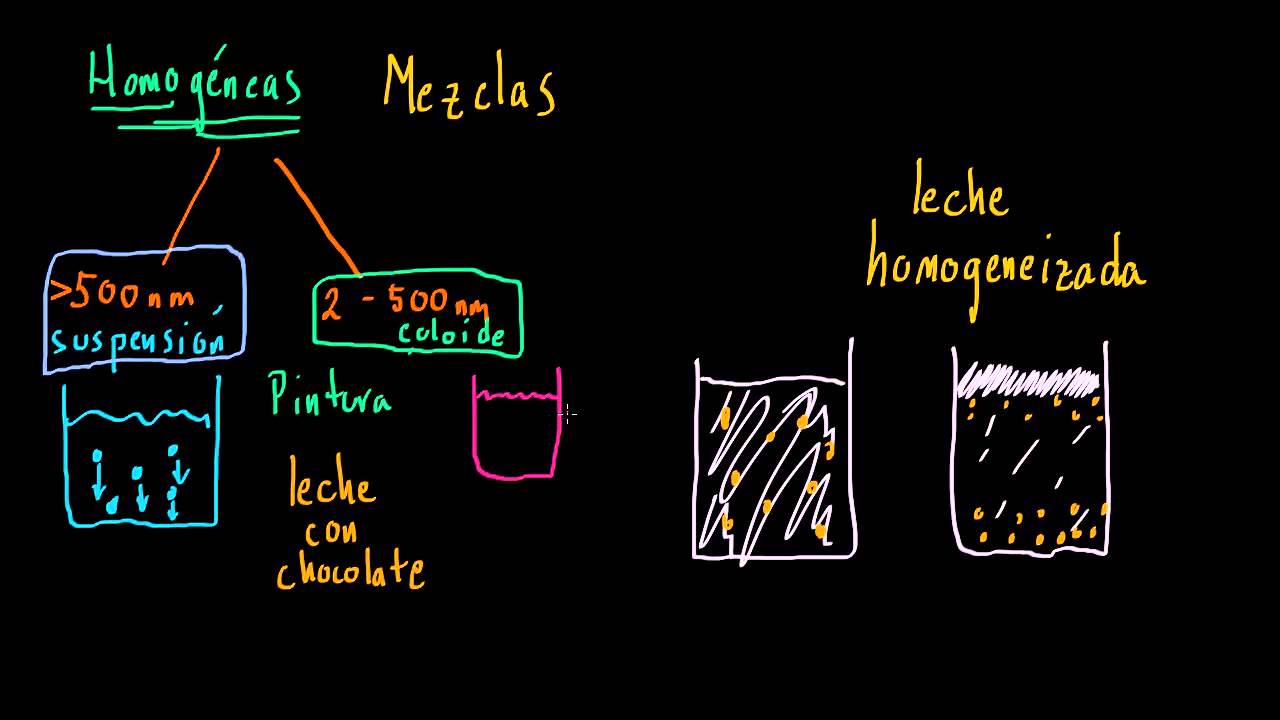 Homogéneas
Mezclas
>500nm
suspensión
2 - 500nm
coloide
Pintura
leche
con
chocolate
leche
homogeneizada